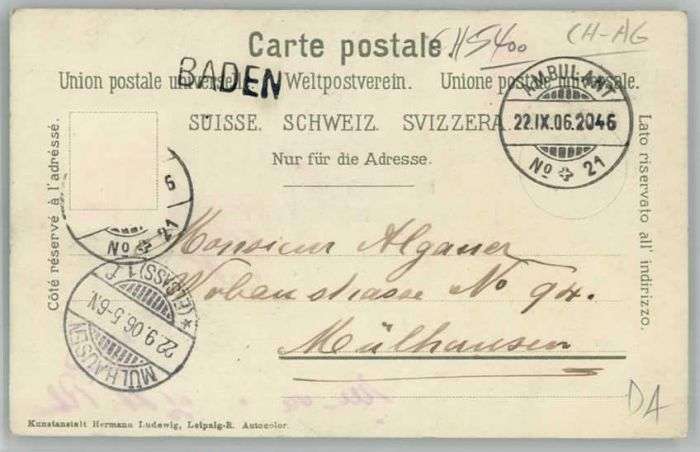 CH5400 CH-AG
Carte postale
BADEN
Union postale universelle. Weltpostverein. Unione postale universale.
SUISSE. SCHWEIZ. SVIZZERA
Nur für die Adresse.
AMBULANT
22.IX.06.2046
No 21
Côté réservé à l'adresse.
Lato riservato all' indirizzo.
6
No 21
Monsieur Alganer
strasse No 94.
Mülhausen
MÜLHAUSEN
22.9.06.5-6N.
*(ELSASS) 1
DA
Kunstanstalt Hermann Ludewig, Leipzig-R. Autocolor.